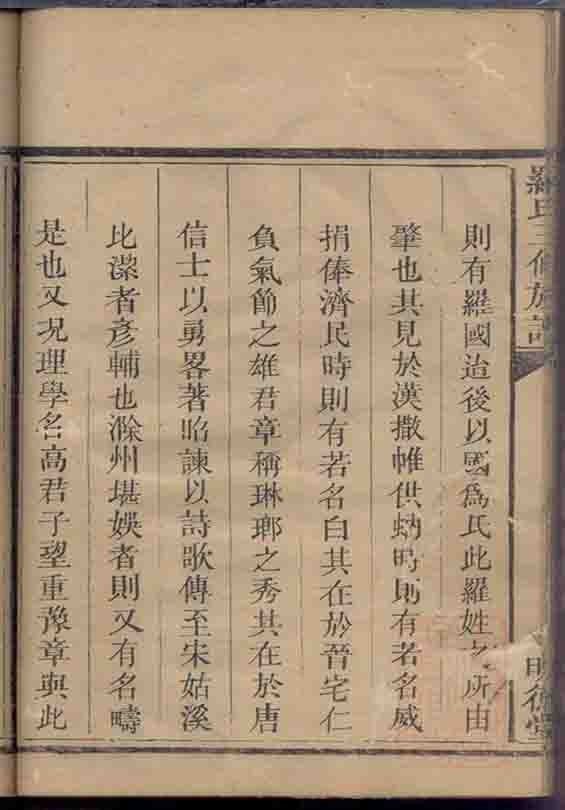 羅氏三修族譜
明德堂
則有羅國迨後以國為氏此羅姓之所由
肇也其見於漢撒帷供蚋時則有若名威
捐俸濟民時則有若名白其在於晉宅仁
負氣節之雄君章稱琳瑯之秀其在於唐
信士以勇畧著昭諫以詩歌傳至宋姑溪
比潔者彥輔也滁州堪娛者則又有名疇
是也又況理學名高君子望重豫章與此